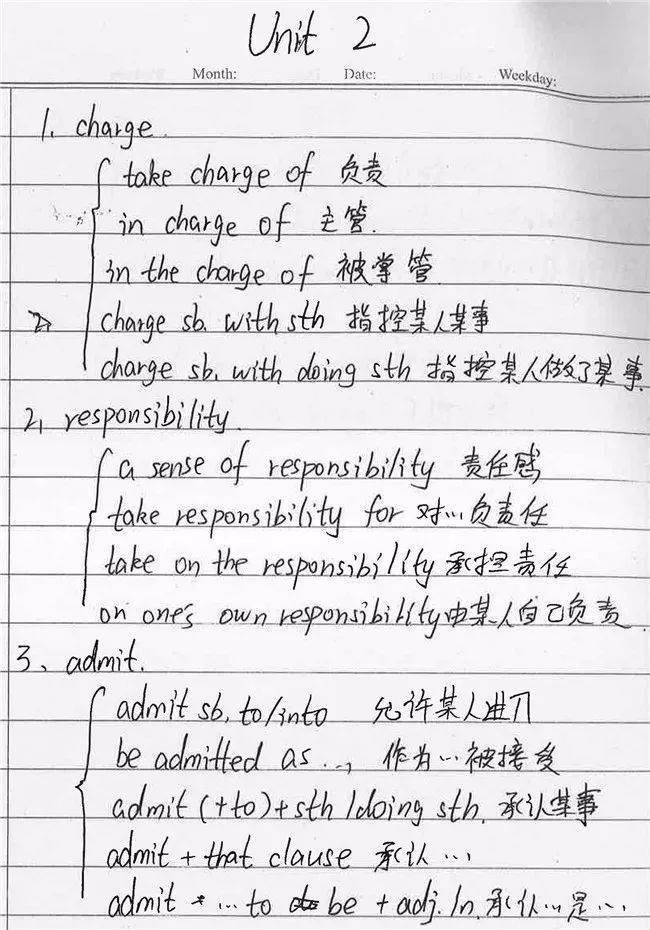 Unit 2
Month: Date: Weekday:
1. charge.
take charge of 负责
in charge of 主管.
in the charge of 被掌管.
charge sb. with sth 指控某人某事
charge sb. with doing sth 指控某人做了某事.
2. responsibility.
a sense of responsibility 责任感
take responsibility for 对… 负责任
take on the responsibility 承担责任
on one's own responsibility 由某人自己负责.
3、admit.
admit sb. to/into 允许某人进入
be admitted as ..., 作为… 被接受
admit (+to)+sth /doing sth. 承认某事
admit + that clause 承认…
admit + ... to be + adj./n. 承认… 是…